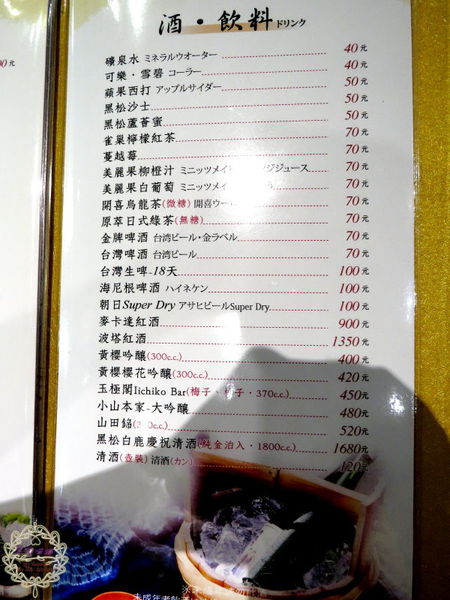 酒・飲料 ドリンク
00元
礦泉水 ミネラルウオーター 40元
可樂・雪碧 コーラー 40元
蘋果西打 アップルサイダー 50元
黑松沙士 50元
黑松蘆薈蜜 50元
雀巢檸檬紅茶 70元
蔓越莓 70元
美麗果柳橙汁 ミニッツメイ ジジュース 70元
美麗果白葡萄 ミニッツメイ 70元
開喜烏龍茶(微糖) 開喜ウー 70元
原萃日式綠茶(無糖) 70元
金牌啤酒 台湾ビール・金ラベル 70元
台灣啤酒 台湾ビール 70元
台灣生啤-18天 100元
海尼根啤酒 ハイネケン 100元
朝日Super Dry アサヒビールSuper Dry 100元
麥卡達紅酒 900元
波塔紅酒 1350元
黃櫻吟釀(300c.c.) 400元
黃櫻櫻花吟釀(300c.c.) 420元
玉極閣Iichiko Bar(梅子、 子・370c.c.) 450元
小山本家-大吟釀 480元
山田錦(3 0c.c.) 520元
黑松白鹿慶祝清酒(純金泊入・1800c.c.) 1680元
清酒(壺裝) 清酒(カン) 120元
未成年